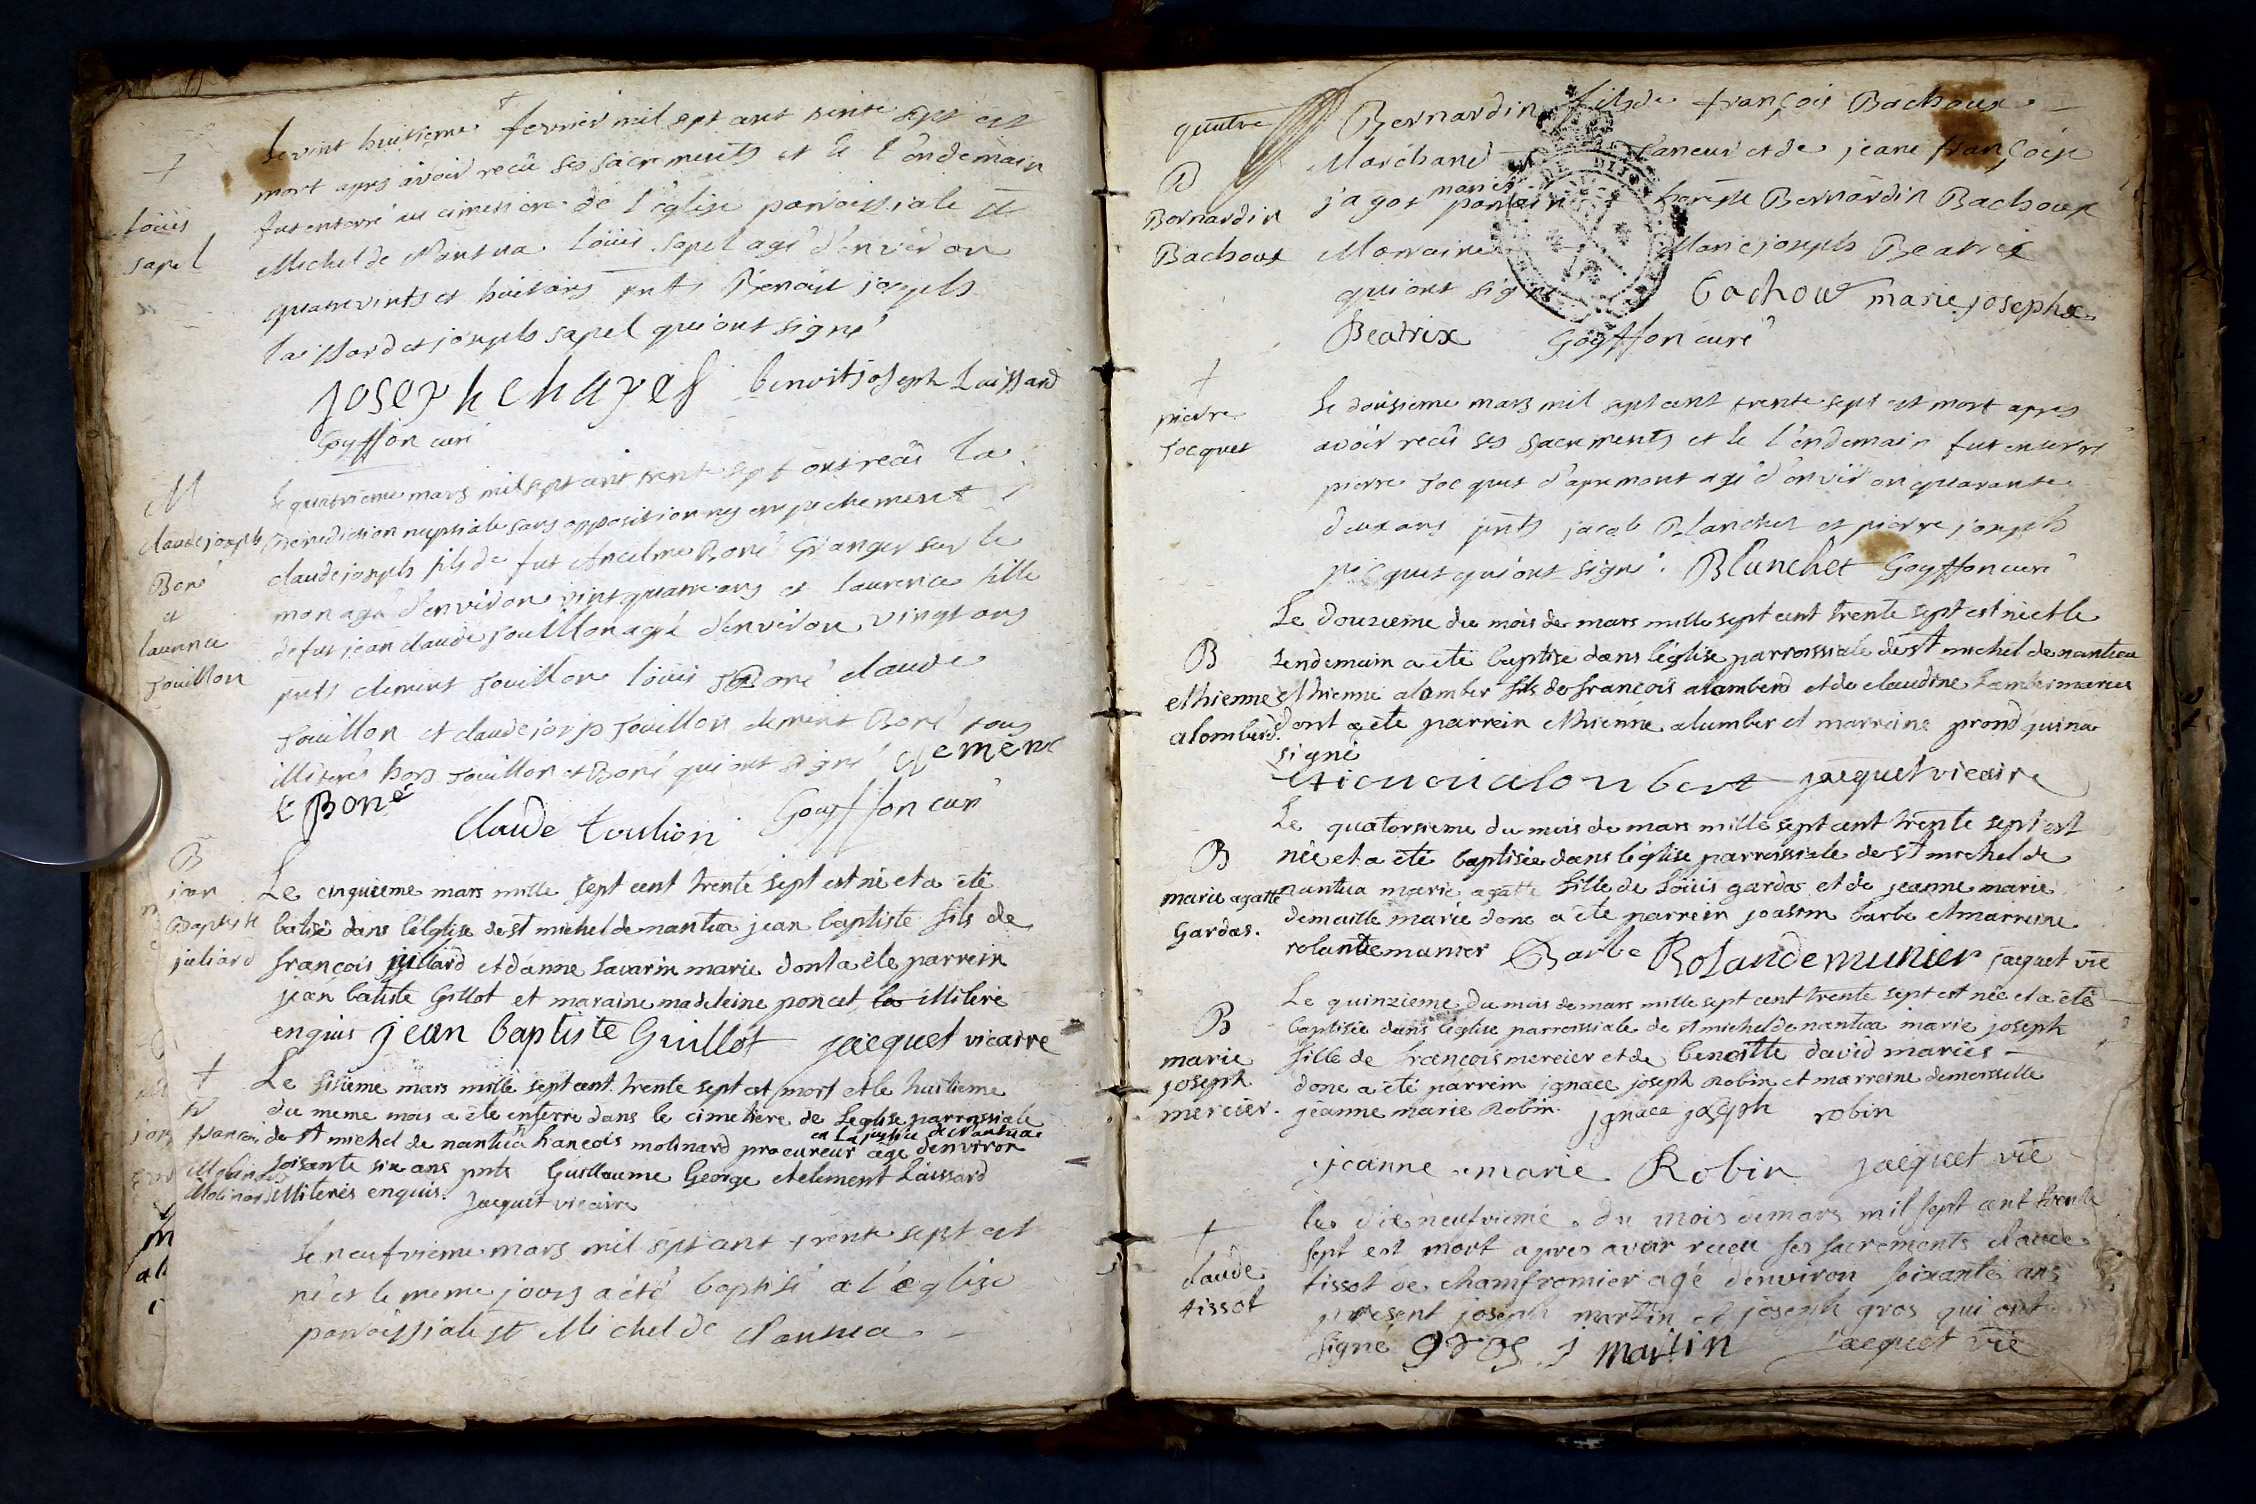 +
Loüis
sapel
Le vint huitieme fevrier mil sept cent trente sept est
mort apres avoir recû ses sacrements et le l'endemain
fut enterré au cimetiere de l'eglise parroissiale st
Michel de Nantua Loüis sapel agé d'environ
quatre vints et huit ans pnts Benoist joseph
laissard et joseph sapel qui ont signé
joseph chapel benoit joseph Laissard
Goyffon curé
M
claude joseph
Boné
et
laurence
touillon
le quatrieme mars mil sept cent trente sept ont recû la
benediction nuptiale sans opposition ny empechement
claude joseph fils de fut Ancelme Boné Granger sur le
mon agé d'environ vint quatre ans et laurence fille
de fut jean claude touillon agé d'environ vingt ans
pnts clement touillon loüis Boné claude
touillon et claude joseph touillon clement Boné tous
illiterés hors touillon et Boné qui ont signé clement
Boné
claude toulion Goyffon curé
B
jean
Baptiste
juliard
Le cinquieme mars mille sept cent trente sept est né et a été
batisé dans l'église de st michel de nantua jean baptiste fils de
françois juillard et d'anne savarin marié dont a été parrein
jean batiste Gillot et maraine madeleine poncet la illiteré
enquis jean baptiste Guillot jacquet vicaire
+
françois
Molinard
Le sisieme mars mille sept cent trente sept est mort et le huitieme
du meme mois a été enterré dans le cimetiere de l'eglise parrossiale
de st michel de nantua françois molinard procureur en la justice de Nantua agé d'environ
soisante six ans pnts Guillaume George et clement Laissard
illiterés enquis. jacquet vicaire
le neufvieme mars mil sept cent trente sept est
né et le meme jours a été baptisé a l'eglise
parroissiale st Michel de Nantua
quatre
B
Bernardin
Bachoux
Bernardin fils de françois Bachoux
Marchand Taneur et de jeane françoise
jagot mariés parrain Bernardin Bachoux
Marraine Marie joseph Beatrix
qui ont signé bachoux marie josephe
Beatrix Goyffon curé
+
pierre
Jocquet
Le dousieme mars mil sept cent trente sept est mort apres
avoir recû ses sacrements et le l'endemain fut enterré
pierre Jocquet d'apremont agé d'environ quarante
deux ans pnts jacob Blanchet et pierre joseph
picquet qui ont signé. Blanchet Goyffon curé
B
ethienne
alomberd.
Le douzieme du mois de mars mille sept cent trente sept est né et le
lendemain a été baptisé dans l'église parroissiale de st michel de nantua
ethienne alomber fils de françois alomberd et de claudine Lamber mariés
dont a été parrein ethienne alumber et marreine prond qui na
signé
etienne alonbert jacquet vicaire
B
marie agatte
Gardas.
Le quatorsieme du mois de mars mille sept cent trente sept est
née et a été baptisée dans l'église parroissiale de st michel de
nantua marie agatte fille de Loüis gardas et de jeanne marie
demaille marié donc a été parrein joasim barbe et marreine
rolande munier Barbe Rolande munier jacquet vic
B
marie
joseph
mercier.
Le quinzieme du mois de mars mille sept cent trente sept est née et a été
baptisée dans l'église parroissiale de st michel de nantua marie joseph
fille de françois mercier et de benoitte david mariés
donc a été parrein ignace joseph Robin et marreine demoiselle
jeanne marie Robin. ignace joseph robin
jeanne marie Robin jacquet vic
+
claude
tissot
le dixneufvieme du mois de mars mil sept cent trente
sept est mort apres avoir receu ses sacrements claude
tissot de chamfromier agé d'environ soixante ans
present joseph martin et joseph gros qui ont
signé gros j martin jacquet vic